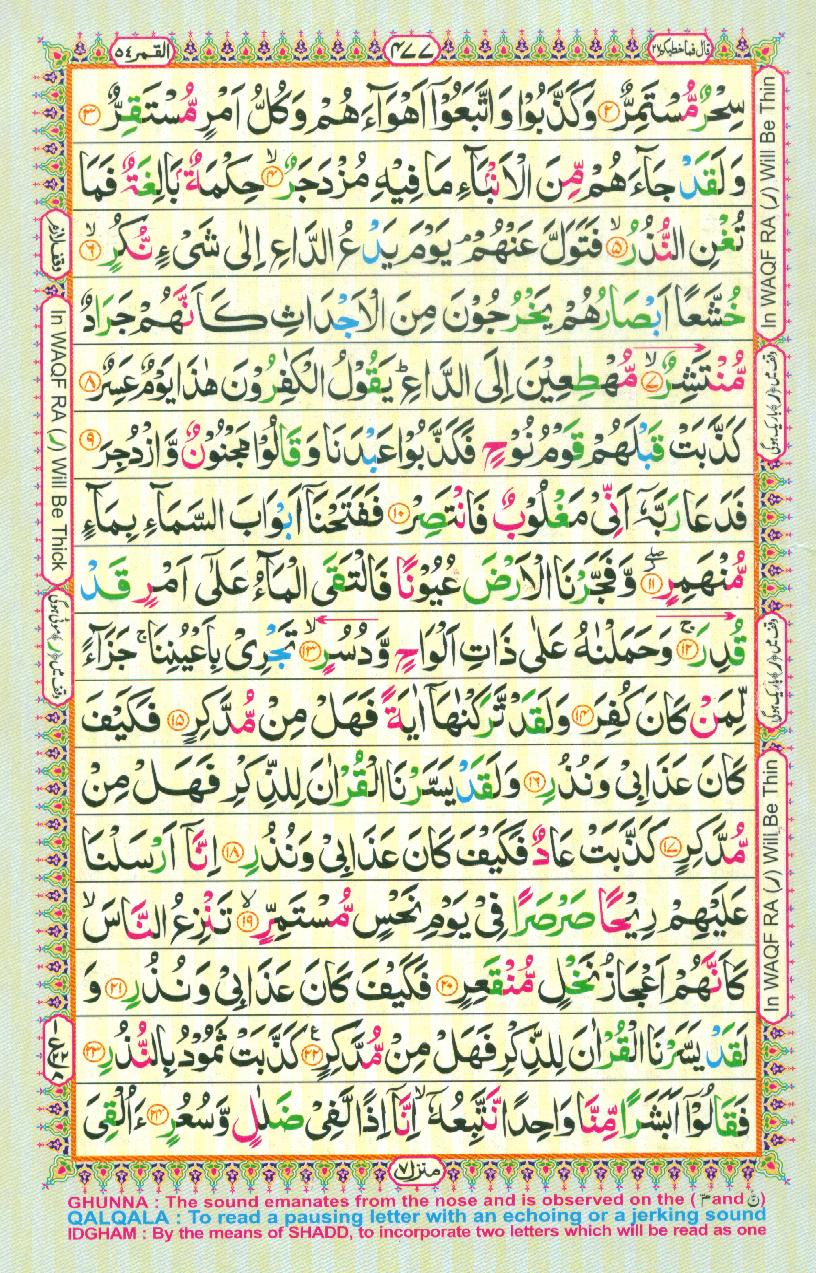 قال فما خطبكم ٢٧
٤٧٧
القمر ٥٤
سِحْرٌ مُّسْتَمِرٌّ ﴿۲﴾ وَكَذَّبُوْا وَاتَّبَعُوْٓا اَهْوَآءَهُمْ وَكُلُّ اَمْرٍ مُّسْتَقِرٌّ ﴿۳﴾
وَلَقَدْ جَآءَهُمْ مِّنَ الْاَنْۢبَآءِ مَا فِيْهِ مُزْدَجَرٌ ۙ﴿۴﴾ حِكْمَةٌۢ بَالِغَةٌ فَمَا
تُغْنِ النُّذُرُ ۙ﴿۵﴾ فَتَوَلَّ عَنْهُمْ ۘ يَوْمَ يَدْعُ الدَّاعِ اِلٰى شَىْءٍ نُّكُرٍ ۙ﴿۶﴾
خُشَّعًا اَبْصَارُهُمْ يَخْرُجُوْنَ مِنَ الْاَجْدَاثِ كَاَنَّهُمْ جَرَادٌ
مُّنْتَشِرٌ ۙ﴿۷﴾ مُّهْطِعِيْنَ اِلَى الدَّاعِ ؕ يَقُوْلُ الْكٰفِرُوْنَ هٰذَا يَوْمٌ عَسِرٌ ﴿۸﴾
كَذَّبَتْ قَبْلَهُمْ قَوْمُ نُوْحٍ فَكَذَّبُوْا عَبْدَنَا وَقَالُوْا مَجْنُوْنٌ وَّازْدُجِرَ ﴿۹﴾
فَدَعَا رَبَّهٗٓ اَنِّىْ مَغْلُوْبٌ فَانْتَصِرْ ﴿۱۰﴾ فَفَتَحْنَآ اَبْوَابَ السَّمَآءِ بِمَآءٍ
مُّنْهَمِرٍ ۖ﴿۱۱﴾ وَّفَجَّرْنَا الْاَرْضَ عُيُوْنًا فَالْتَقَى الْمَآءُ عَلٰٓى اَمْرٍ قَدْ
قُدِرَ ۚ﴿۱۲﴾ وَحَمَلْنٰهُ عَلٰى ذَاتِ اَلْوَاحٍ وَّدُسُرٍ ۙ﴿۱۳﴾ تَجْرِىْ بِاَعْيُنِنَا ۚ جَزَآءً
لِّمَنْ كَانَ كُفِرَ ﴿۱۴﴾ وَلَقَدْ تَّرَكْنٰهَآ اٰيَةً فَهَلْ مِنْ مُّدَّكِرٍ ﴿۱۵﴾ فَكَيْفَ
كَانَ عَذَابِىْ وَنُذُرِ ﴿۱۶﴾ وَلَقَدْ يَسَّرْنَا الْقُرْاٰنَ لِلذِّكْرِ فَهَلْ مِنْ
مُّدَّكِرٍ ﴿۱۷﴾ كَذَّبَتْ عَادٌ فَكَيْفَ كَانَ عَذَابِىْ وَنُذُرِ ﴿۱۸﴾ اِنَّآ اَرْسَلْنَا
عَلَيْهِمْ رِيْحًا صَرْصَرًا فِىْ يَوْمِ نَحْسٍ مُّسْتَمِرٍّ ۙ﴿۱۹﴾ تَنْزِعُ النَّاسَ ۙ
كَاَنَّهُمْ اَعْجَازُ نَخْلٍ مُّنْقَعِرٍ ﴿۲۰﴾ فَكَيْفَ كَانَ عَذَابِىْ وَنُذُرِ ﴿۲۱﴾ وَ
لَقَدْ يَسَّرْنَا الْقُرْاٰنَ لِلذِّكْرِ فَهَلْ مِنْ مُّدَّكِرٍ ۧ﴿۲۲﴾ كَذَّبَتْ ثَمُوْدُ بِالنُّذُرِ ﴿۲۳﴾
فَقَالُوْٓا اَبَشَرًا مِّنَّا وَاحِدًا نَّتَّبِعُهٗٓ ۙ اِنَّآ اِذًا لَّفِىْ ضَلٰلٍ وَّسُعُرٍ ﴿۲۴﴾ ءَاُلْقِىَ
In WAQF RA (ر) Will Be Thin
وقف میں (ر) باریک ہوگی
وقف میں (ر) باریک ہوگی
In WAQF RA (ر) Will Be Thin
وقف لازم
In WAQF RA (ر) Will Be Thick
وقف میں (ر) موٹی ہوگی
منزل ٧
GHUNNA : The sound emanates from the nose and is observed on the ( م and ن )
QALQALA : To read a pausing letter with an echoing or a jerking sound
IDGHAM : By the means of SHADD, to incorporate two letters which will be read as one